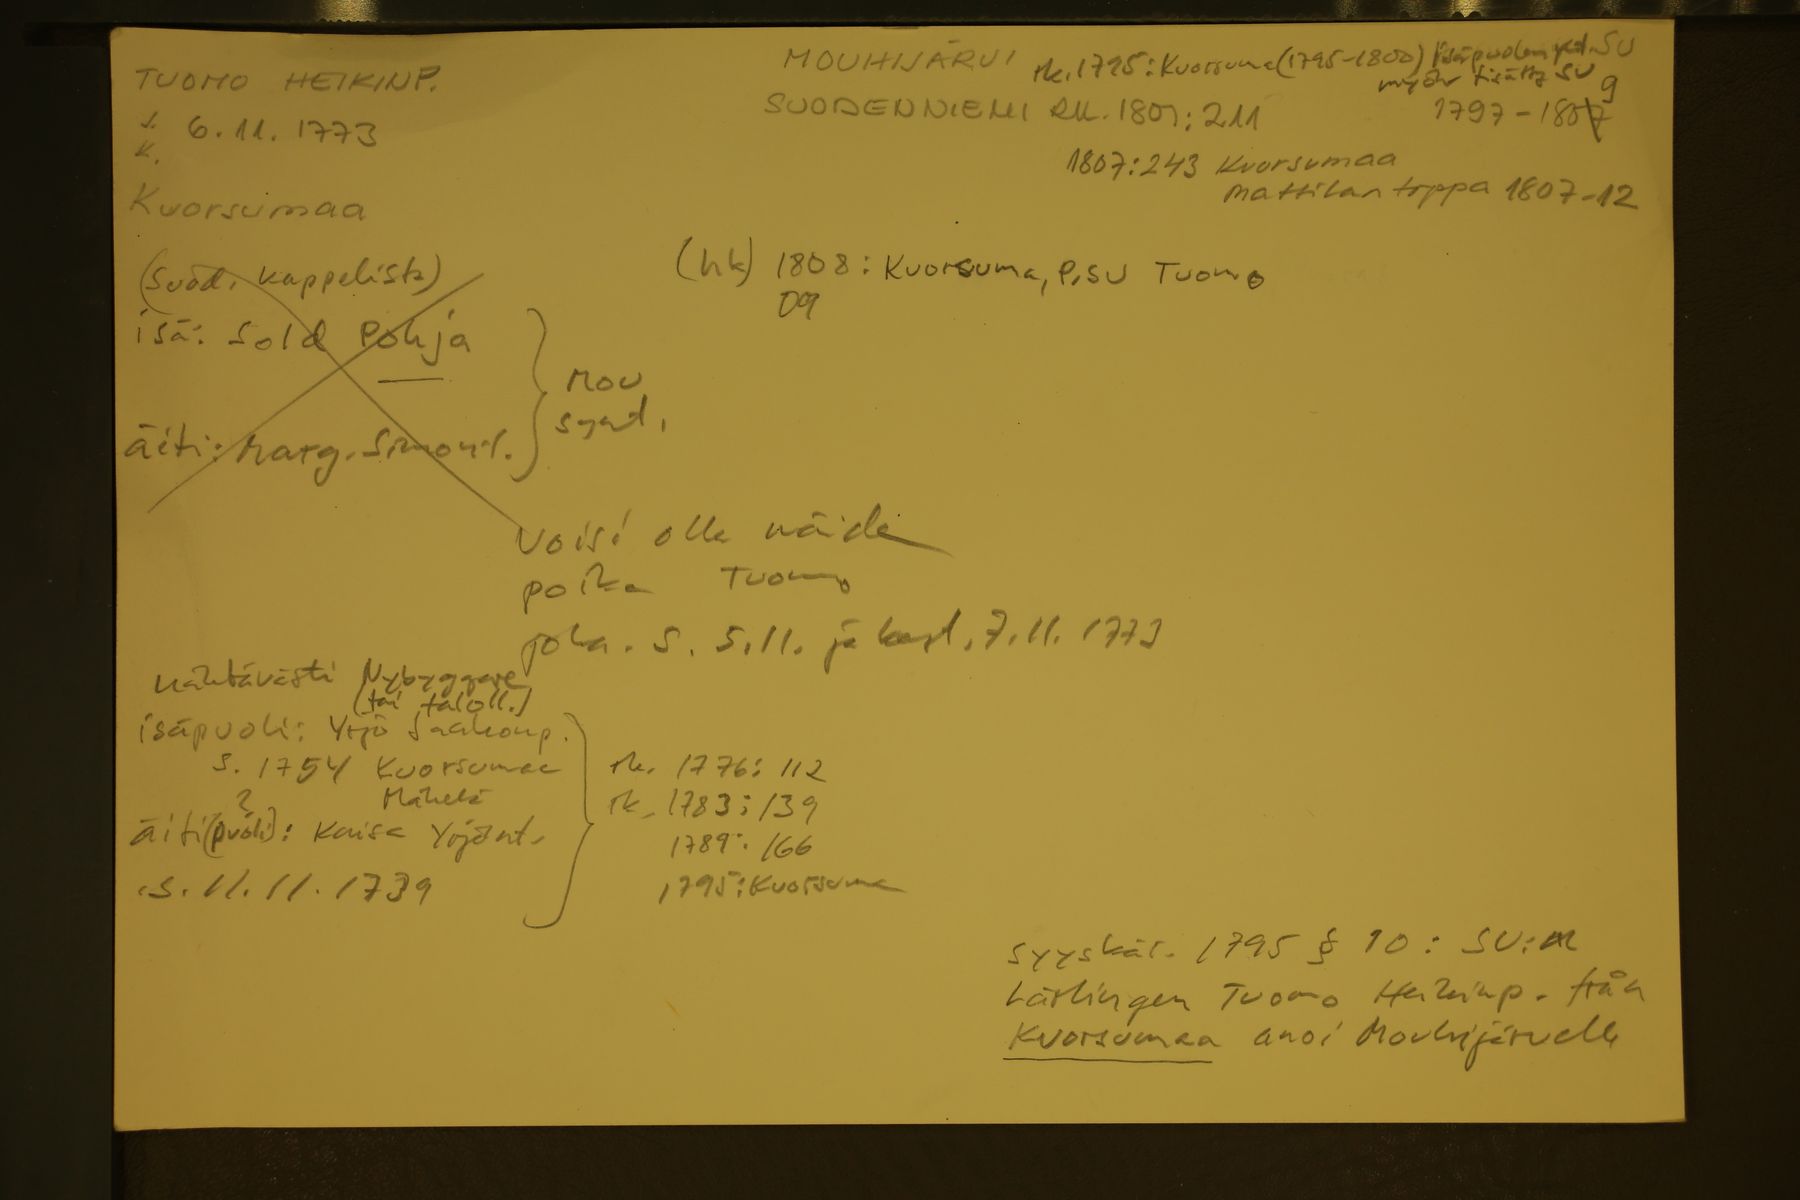 TUOMO HEIKINP.
s. 6.11. 1773
k.
Kuorsumaa
MOUHIJÄRVI
rk. 1795: Kuorsuma (1795-1800) isäpuolen SU
myöh. lisätty SU
SUODENNIEMI RK. 1801: 211
1797-1807
9
1807:243 Kuorsumaa
Mattilan torppa 1807-12
(hk) 1808: Kuorsuma, P, SU Tuomo
09
(Suod. kappelista)
isä: sold Pohja
äiti: Marg. Simont.
Mou
synt.
Voisi olla näiden
poika Tuomo
joka. s. 5.11. ja kast. 7.11. 1773
nähtävästi Nybyggare
(tai taloll.)
isäpuoli: Yrjö Jaakonp.
s. 1754 Kuorsumaa
Mäkelä
?
äiti(puoli): Kaisa Yrjönt.
s. 11.11.1739
rk. 1776: 112
rk. 1783: 139
1789: 166
1795: Kuorsuma
syyskär. 1795 § 10: SU:n
Lärlingen Tuomo Heikinp. från
Kuorsumaa anoi Mouhijärvelle